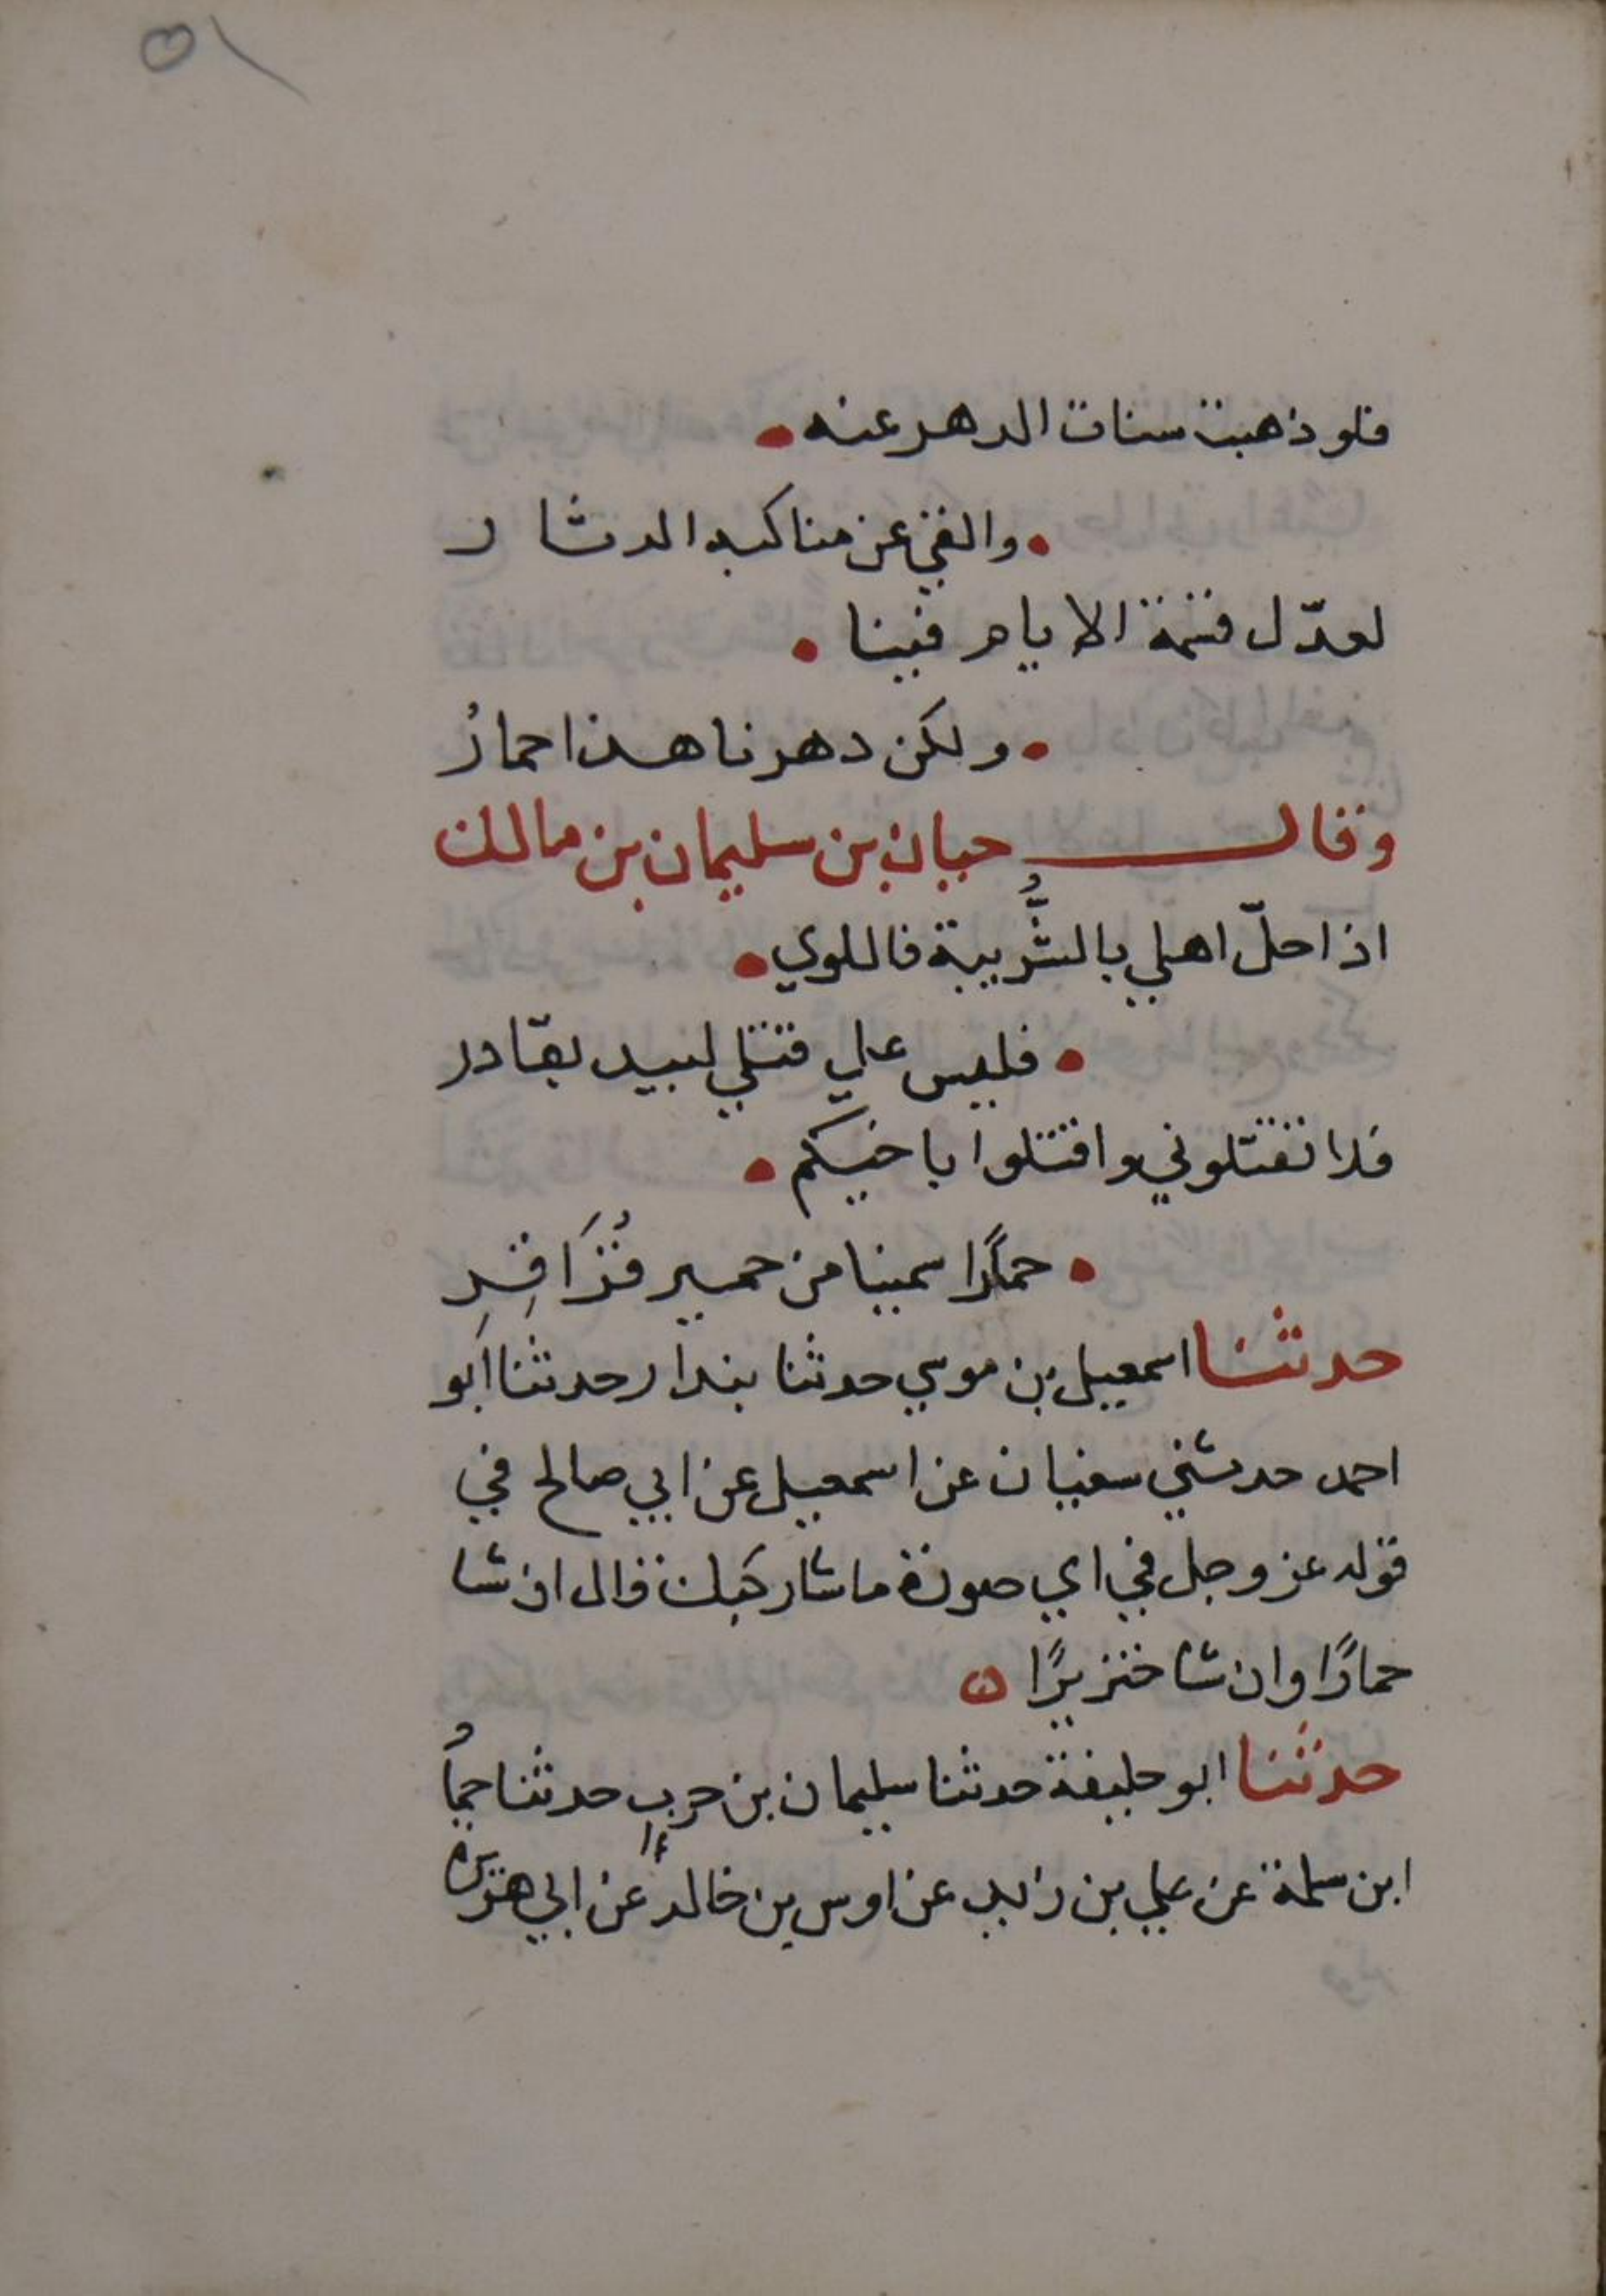 ٥١
فلو ذهبت سنات الدهر عنه •
• والقي عن مناكبه الدثار
لعدّل قسمة الايام فينا •
• ولكن دهرنا هذا حمارُ
وقال حبان بن سليمان بن مالك
اذا حلّ اهلي بالشُّربية فاللوي •
• فليس علي قتلي لبيد بقادر
فلا تقتلوني واقتلوا باخيكم •
• حمارًا سمينا من حمير قُرَاقِرِ
حدثنا اسمعيل بن موسي حدثنا بندار حدثنا ابو
احمد حدثني سفيان عن اسمعيل عن ابي صالح في
قوله عز وجل في اي صورة ما شا ركبك قال ان شا
حمارًا وان شا خنزيرًا
حدثنا ابو خليفة حدثنا سليمان بن حرب حدثنا حماد
ابن سلمة عن علي بن زيد عن اوس بن خالد عن ابي هريرة